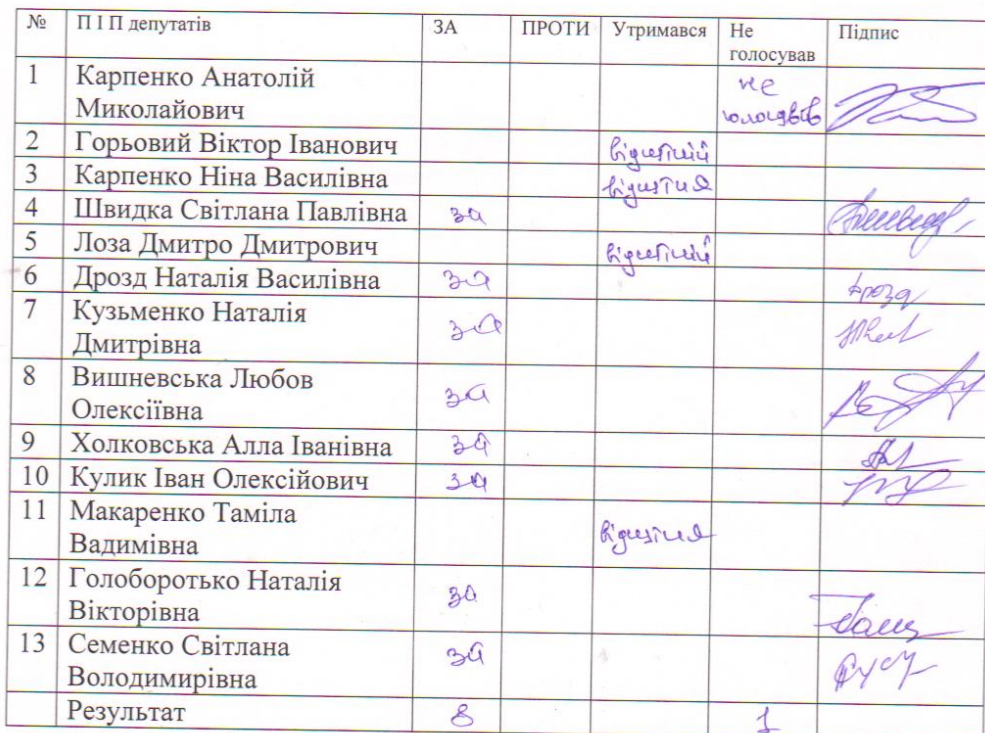 № П І П депутатів ЗА ПРОТИ Утримався Не Підпис
голосував
1 Карпенко Анатолій не
Миколайович
2 Горьовий Віктор Іванович відсутній
3 Карпенко Ніна Василівна відсутня
4 Швидка Світлана Павлівна за
5 Лоза Дмитро Дмитрович відсутній
6 Дрозд Наталія Василівна за Дрозд
7 Кузьменко Наталія за
Дмитрівна
8 Вишневська Любов за
Олексіївна
9 Холковська Алла Іванівна за
10 Кулик Іван Олексійович за
11 Макаренко Таміла відсутня
Вадимівна
12 Голоборотько Наталія за
Вікторівна
13 Семенко Світлана за
Володимирівна
Результат 8 1